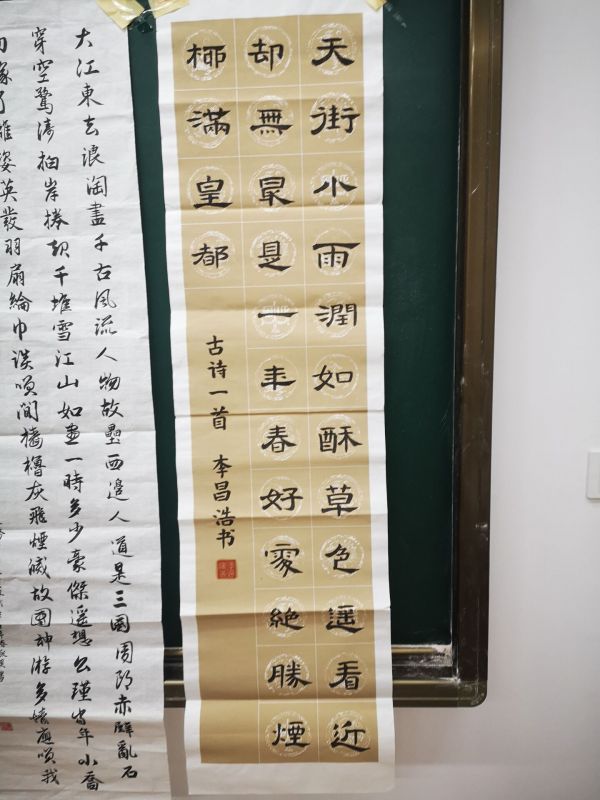 天街小雨潤如酥草色遥看近
却無最是一年春好處絶勝煙
柳滿皇都
古诗一首 李昌浩书
大江東去浪淘盡千古風流人物故壘西邊人道是三國周郎赤壁亂石
穿空驚濤拍岸捲起千堆雪江山如畫一時多少豪傑遥想公瑾當年小喬
初嫁了雄姿英發羽扇綸巾談笑間檣櫓灰飛煙滅故國神游多情應笑我